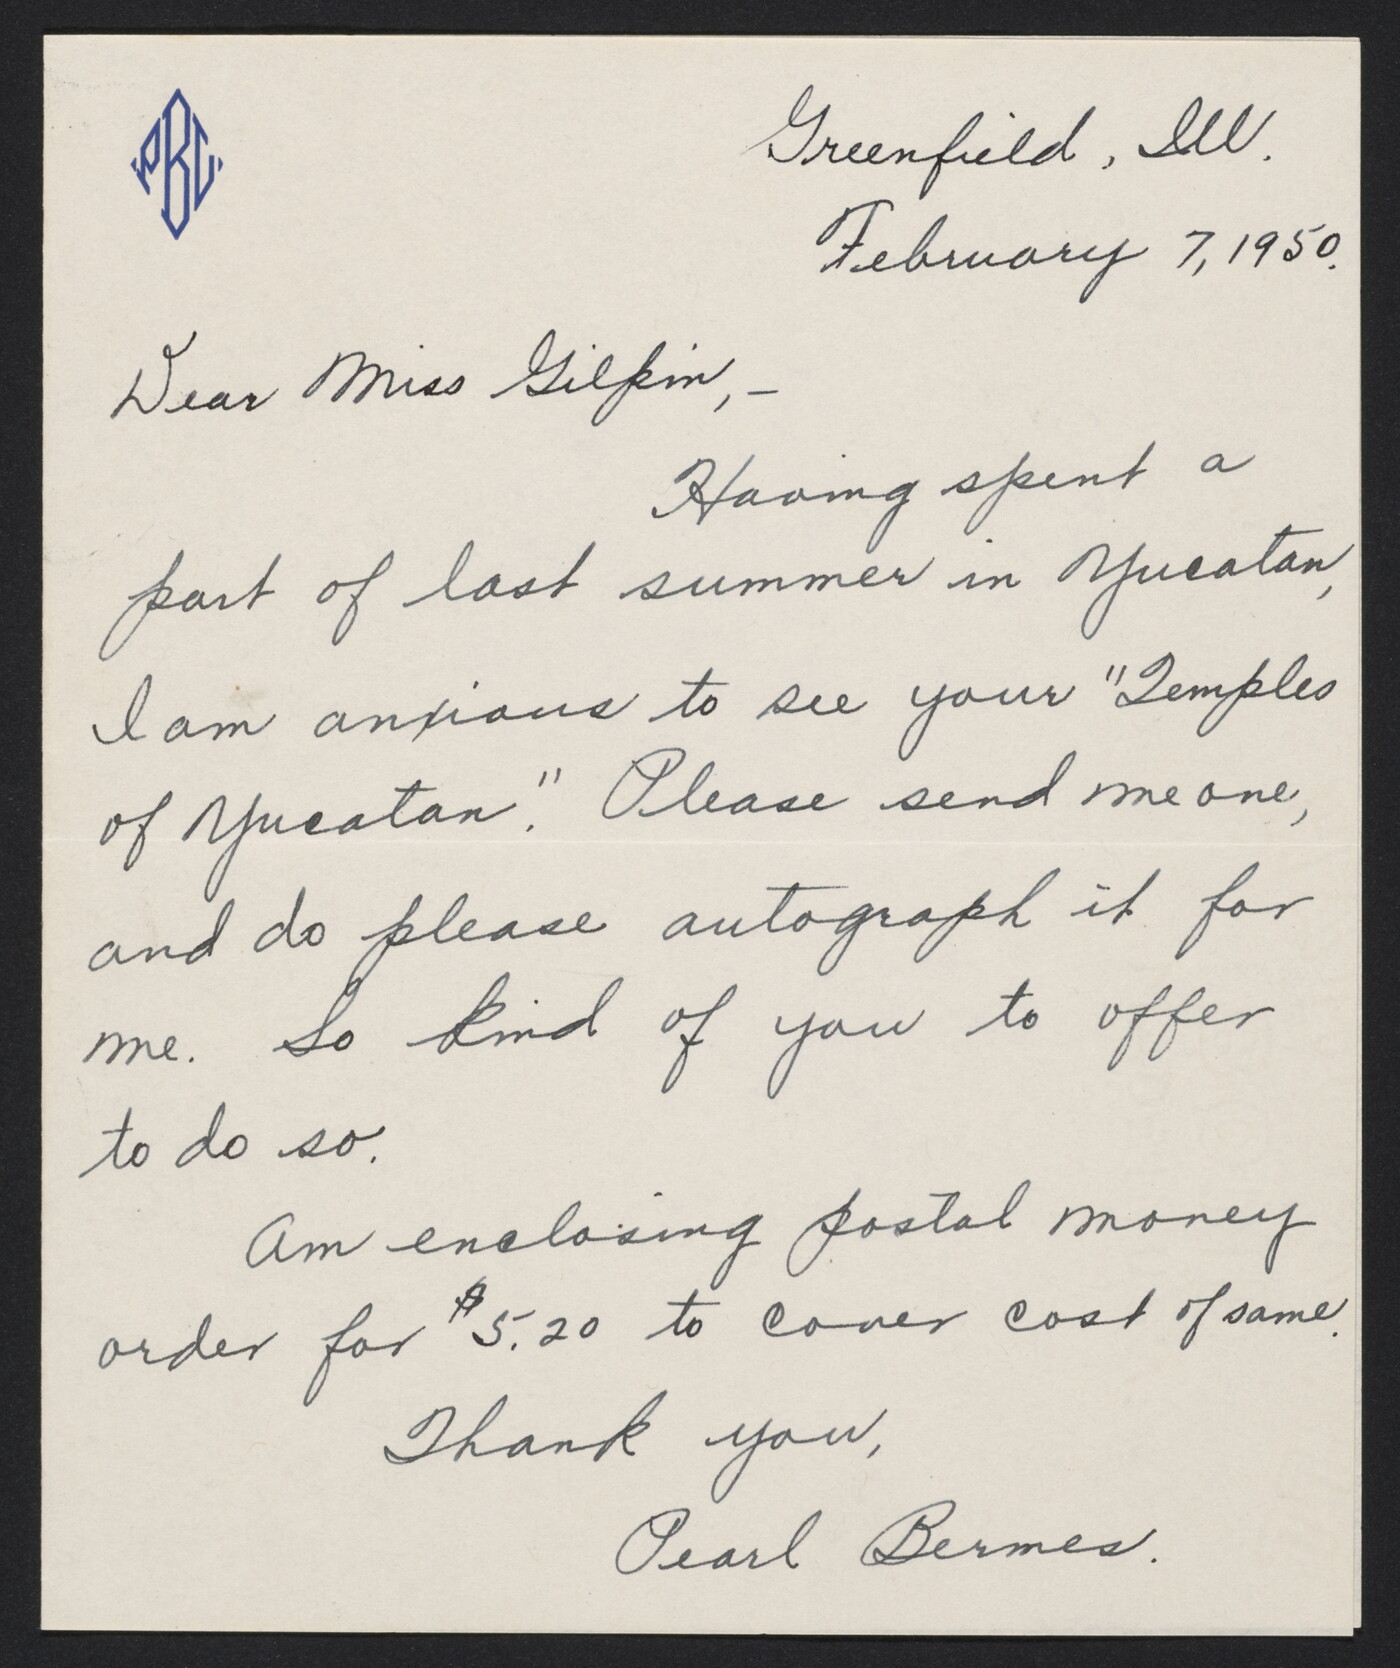 PBC
Greenfield, Ill.
February 7, 1950.
Dear Miss Gilpin, –
Having spent a
part of last summer in Yucatan,
I am anxious to see your "Temples
of Yucatan." Please send me one,
and do please autograph it for
me. So kind of you to offer
to do so.
Am enclosing postal money
order for $5.20 to cover cost of same.
Thank you,
Pearl Bermes.